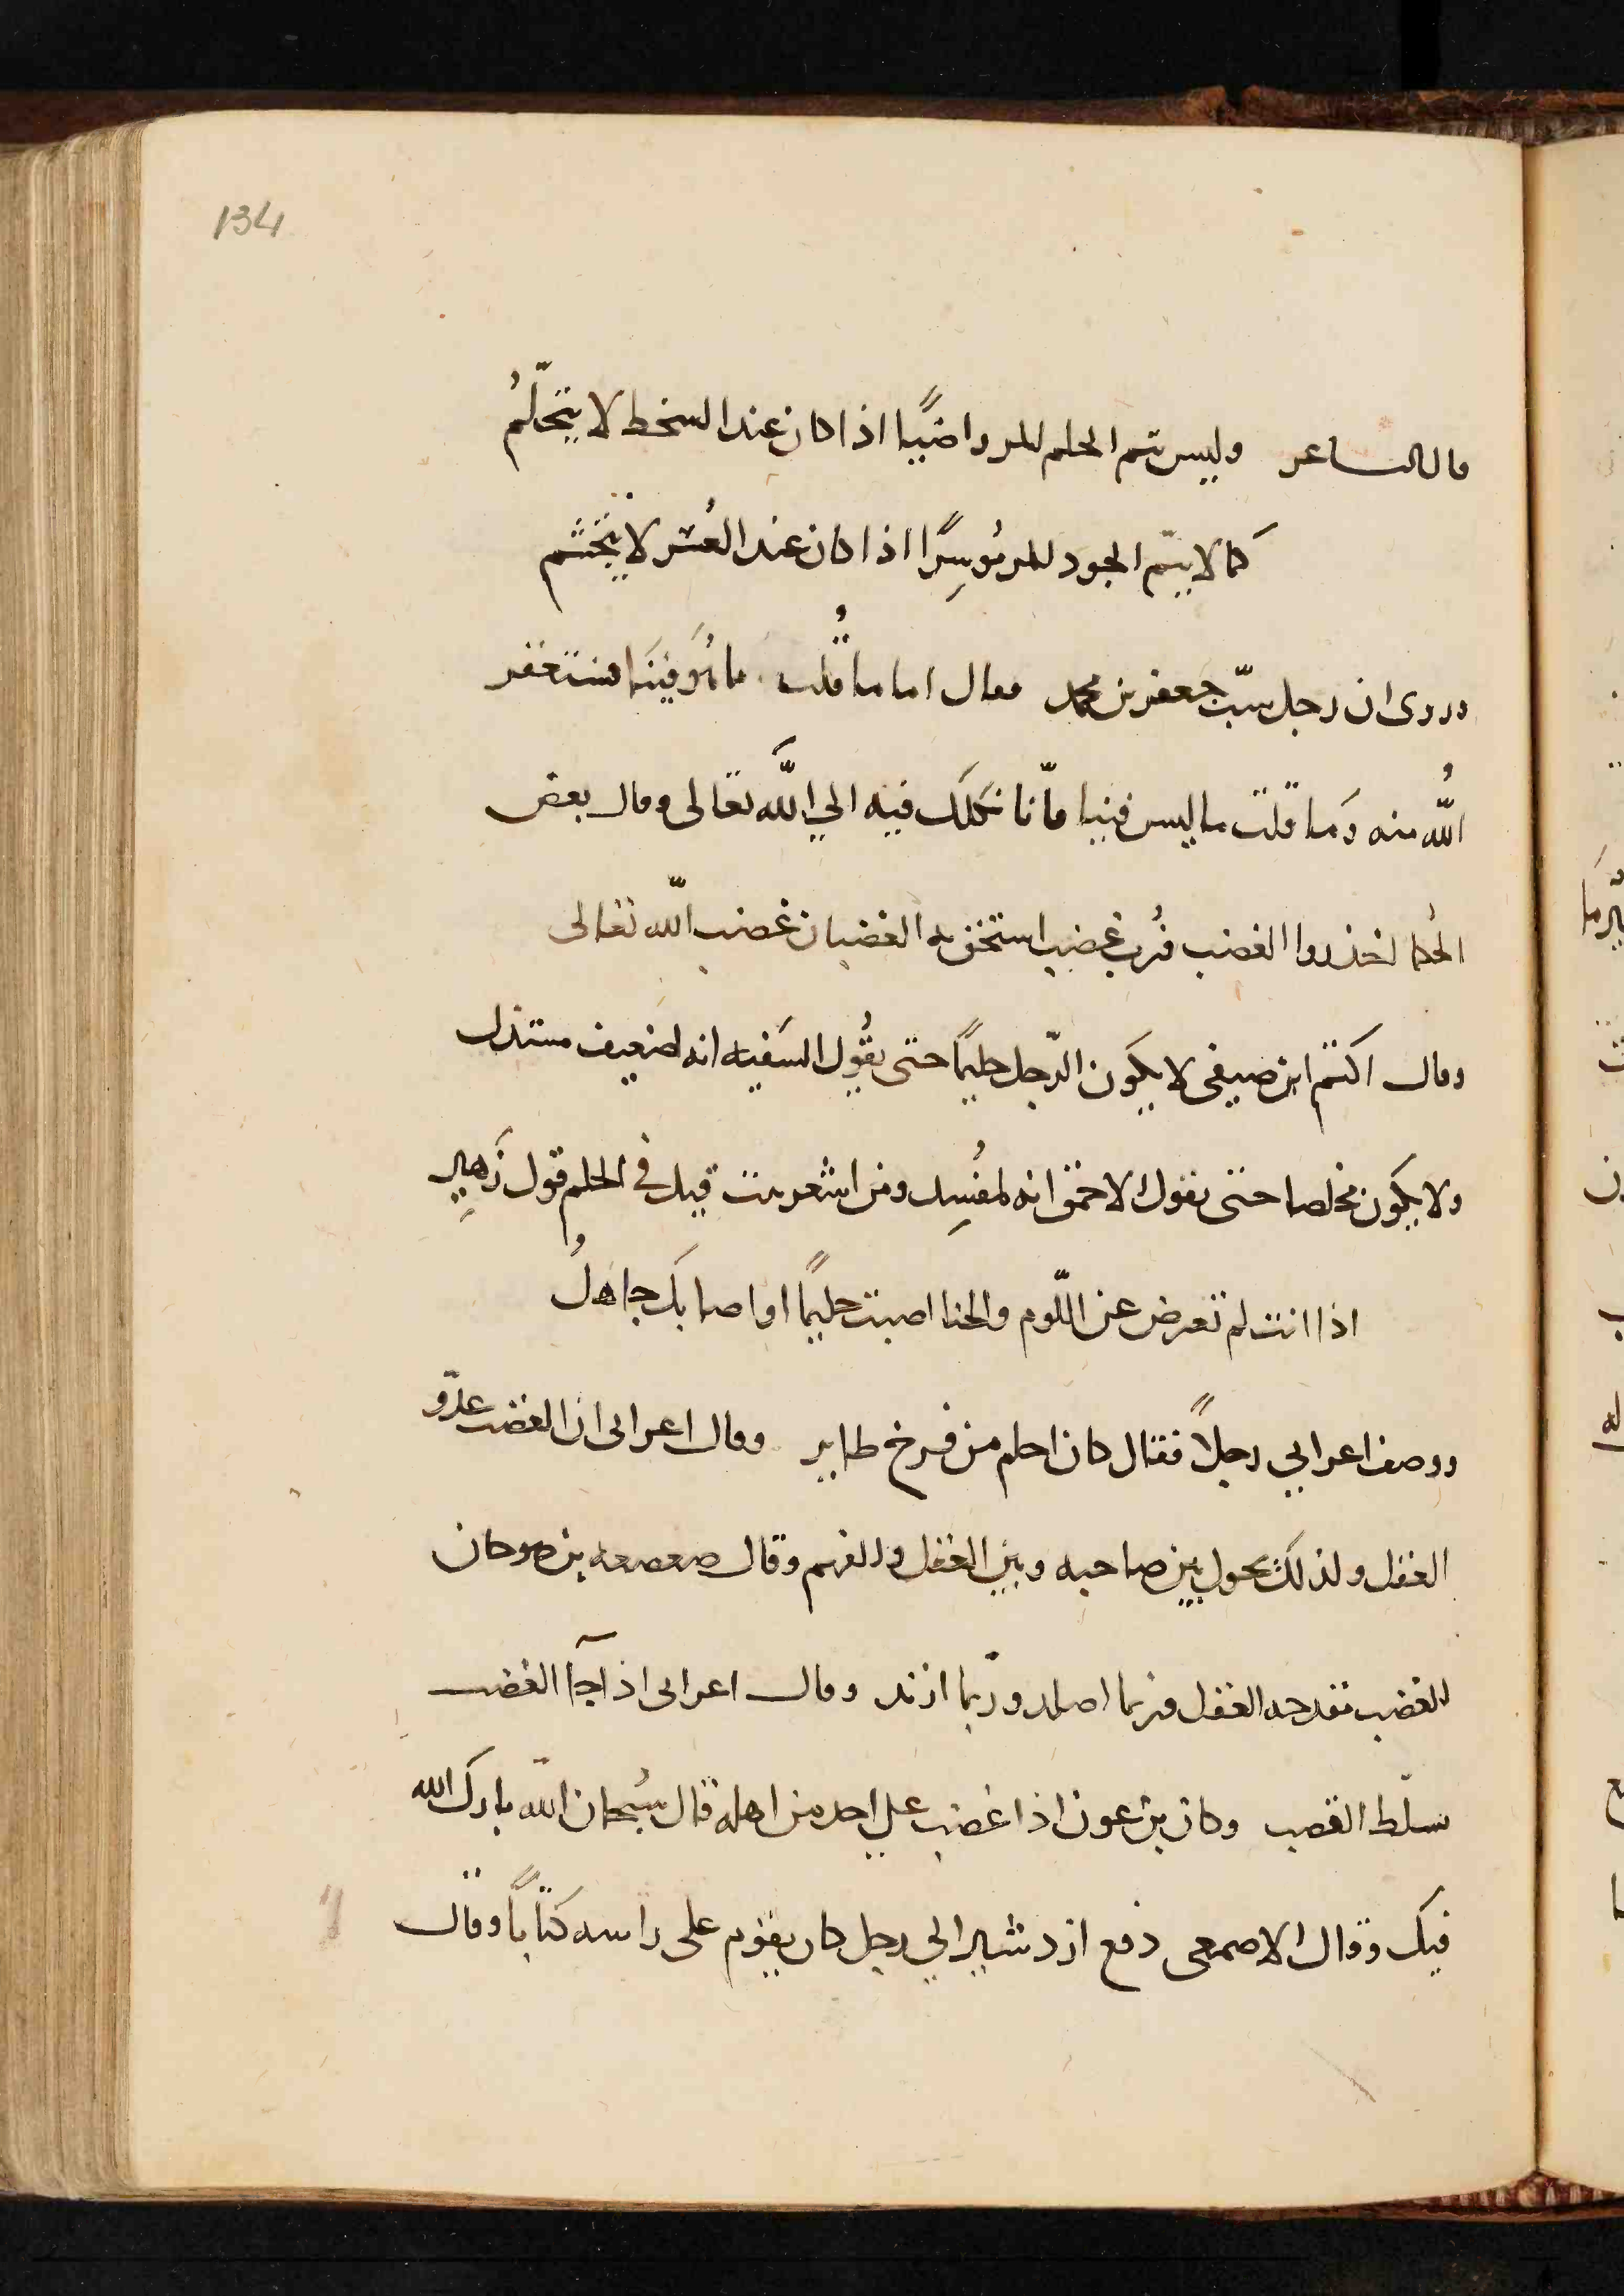 134
قال الشاعر وليس يتم الحلم للمر راضيًا اذا كان عند السخط لا يتحلّمُ
كما لا يتم الجود للمر مُوسِرًا اذا كان عند العُسْر لا يتجشم
وروى ان رجل سبّ جعفر بن محمد فقال اما ما قُلت مما هُوَ فينَا فنستغفر
اللّه منه وَما قلت ما ليس فينا فانّا نكلك فيه الي اللّه تعالى وقال بعض
الحُكما احذروا الغضب فرُب غضب استحق به الغضبان غضب اللّه تعالى
وقال اكثم ابن صيفى لا يكون الرّجل حليمًا حتى يقُول السَفيه انه لضعيف مستذل
ولا يكون مخلصا حتى يقول الاحمق انه لمفُسِد ومن اشعر بيت قيل في الحلم قول زُهيرِ
اذا انت لم تعرض عن اللّوم والخنا اصبت حليمًا او اصابكَ جاهلُ
ووصف اعرابي رجلاً فقال كان احلم من فرخ طاير وقال اعرابى ان الغضب عدّو
العقل ولذلك يحول بين صاحبه وبين العقل والفهم وقال صعصعه بن صوحان
الغضب تقدحه العقل فربما اصلد وربّما ازند وقال اعرابى اذا جآ الغضب
سلّط القصب وكان بن عون اذا غضب علي احد من اهله قال سُبحان اللّه بارك الله
فيك وقال الاصمعى دفع ازدشير الي رجل كان يقوم على راسه كتابًا وقال